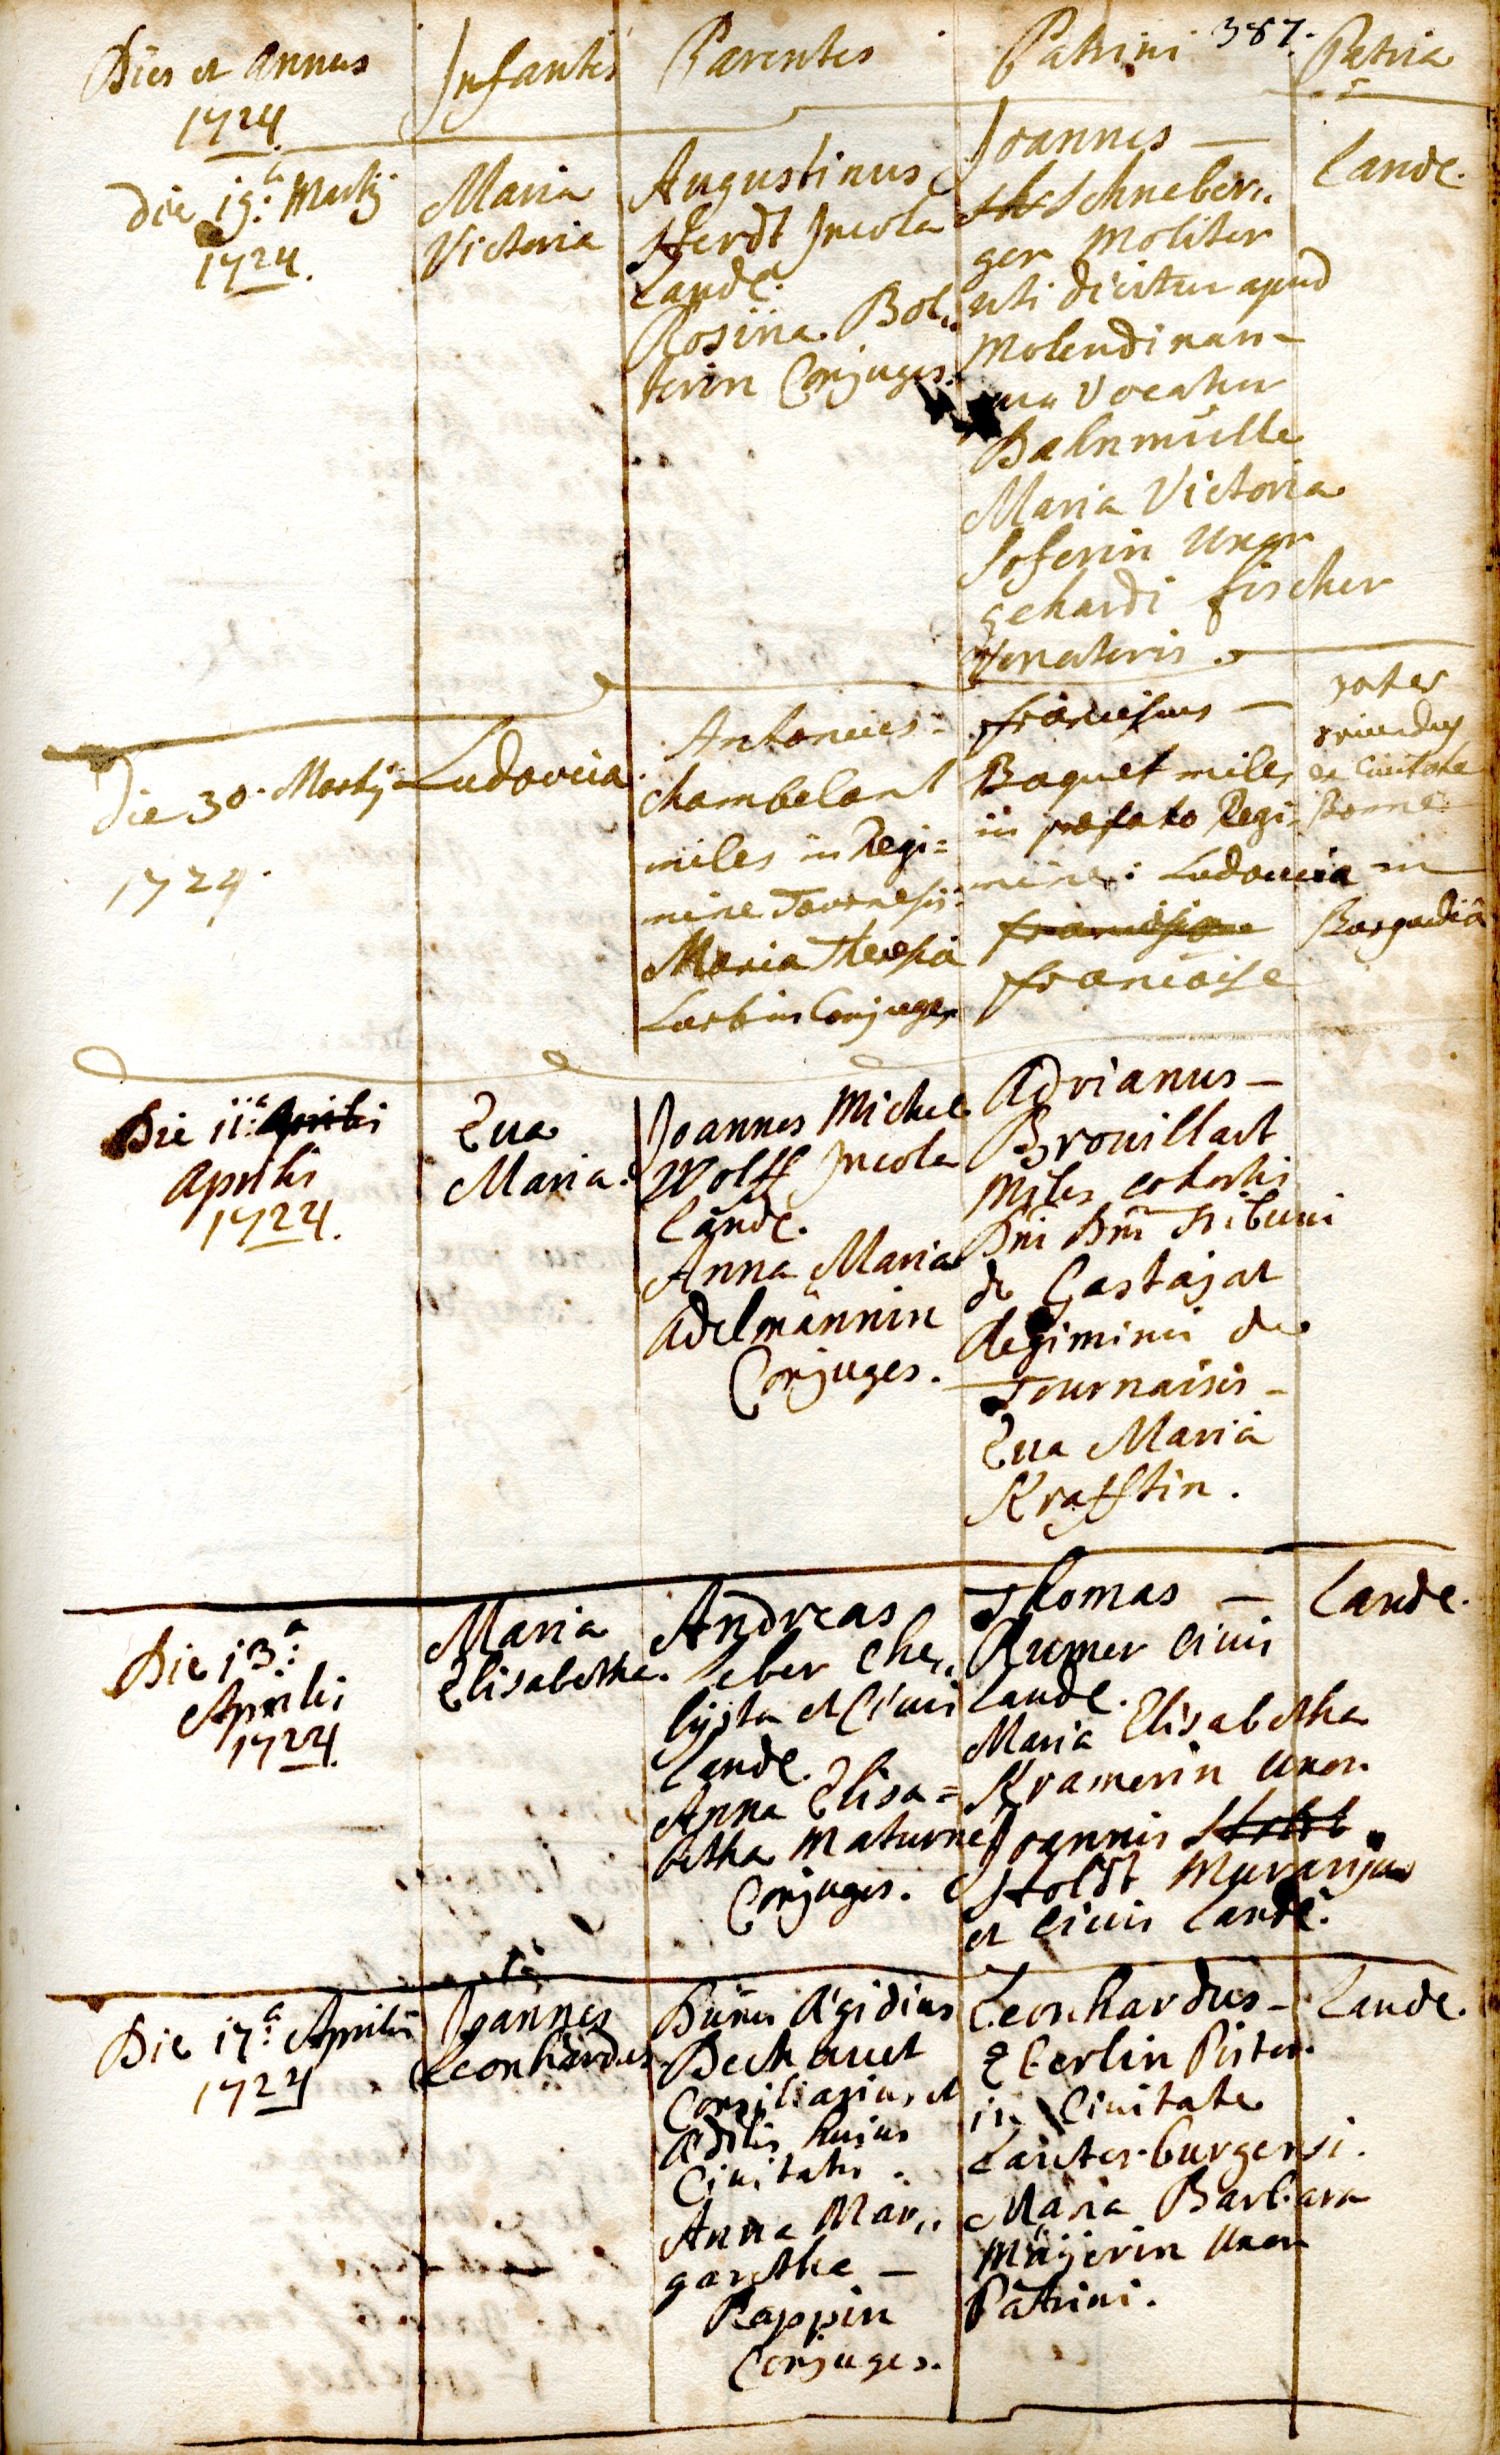 387.
Dies et Annus
1724
Infantes
Parentes
Patrini
Patria
die 19.a Martij
1724.
Maria
Victoria
Augustinus
Herdt Incola
Landae.
Rosina Bol„
lerin Conjuges.
Joannes —
Schneber„
ger Moliter
uti dicitur apud
Molendinam
qua Vocatur
Bahnmülle
Maria Victoria
Soferin Uxor
gehardi fischer
Venatoris.
Landae.
Die 30. Martij
1724.
Ludovica
Antonius
chambelant
miles in Regi=
mine Tournesis
Maria Theresia
Larbin Conjuges
franciscus —
Baquet miles
in prefato Regi-
mine: Ludovica
francisca
francoise
pater
oriundus
ex Civitate
in
Burgundia
Die 11.a Aprilis
Aprilis
1724.
Eua
Maria.
Joannes Michel
Wolff Incola
Landae.
Anna Maria
Adelmännin
Conjuges.
Adrianus —
Brouillart
Miles cohortis
Dni Dni Tribuni
de Gastajat
Regiminis de
Tournaisis —
Eua Maria
Krafftin.
Die 13.a
Aprilis
1724.
Maria
Elisabetha.
Andreas
leber Che„
lysta et Ciuis
Landae.
Anna Elisa=
betha Maturne
Conjuges.
Thomas —
Rumer Ciuis
Landae.
Maria Elisabetha
Kramerin Uxor
Joannis
Stoldt Murarij
et Ciuis Landae.
Landae.
Die 17.a Aprilis
1724
Joannes
Leonhardus.
Dnus Aegidius
Bechauet
Consiliarius et
aedilis huius
Ciuitatis.
Anna Mar„
garetha —
Rappin
Conjuges.
Leonhardus —
Eberlin Pistor
in Ciuitate
Lauterburgensi.
Maria Barbara
Mäyerin Uxor
Patrini.
Landae.